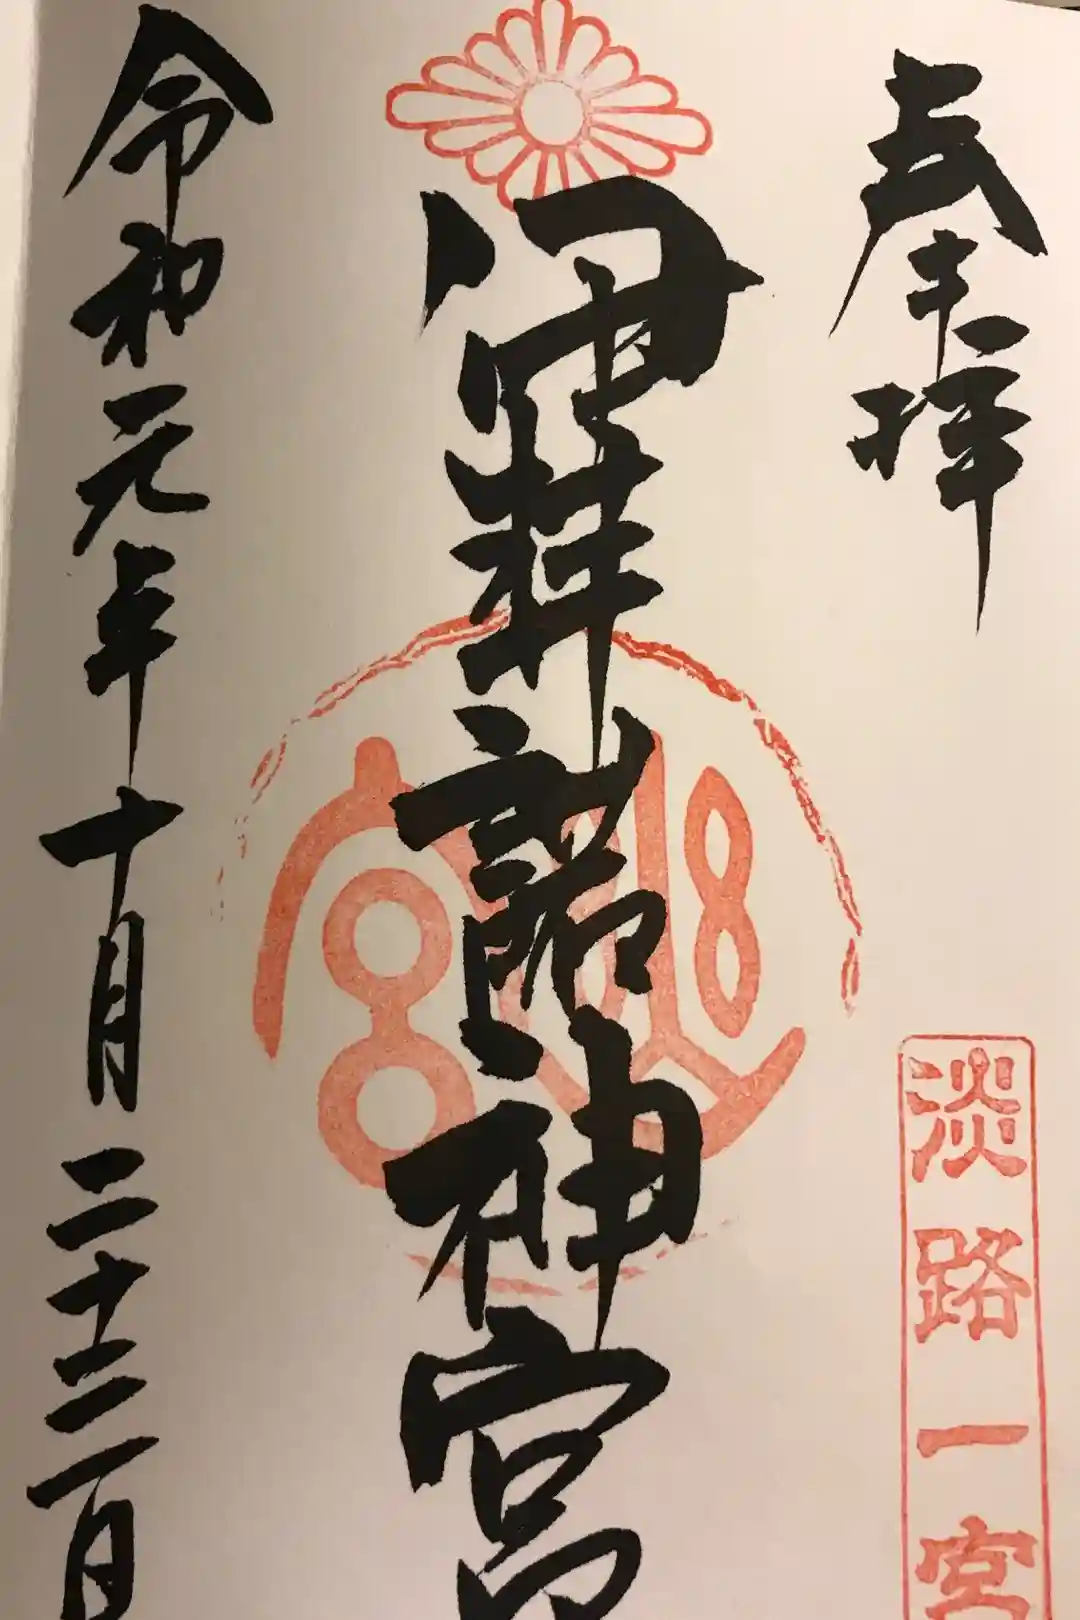 奉拝
淡路一宮
伊弉諾神宮
令和元年十月二十三日